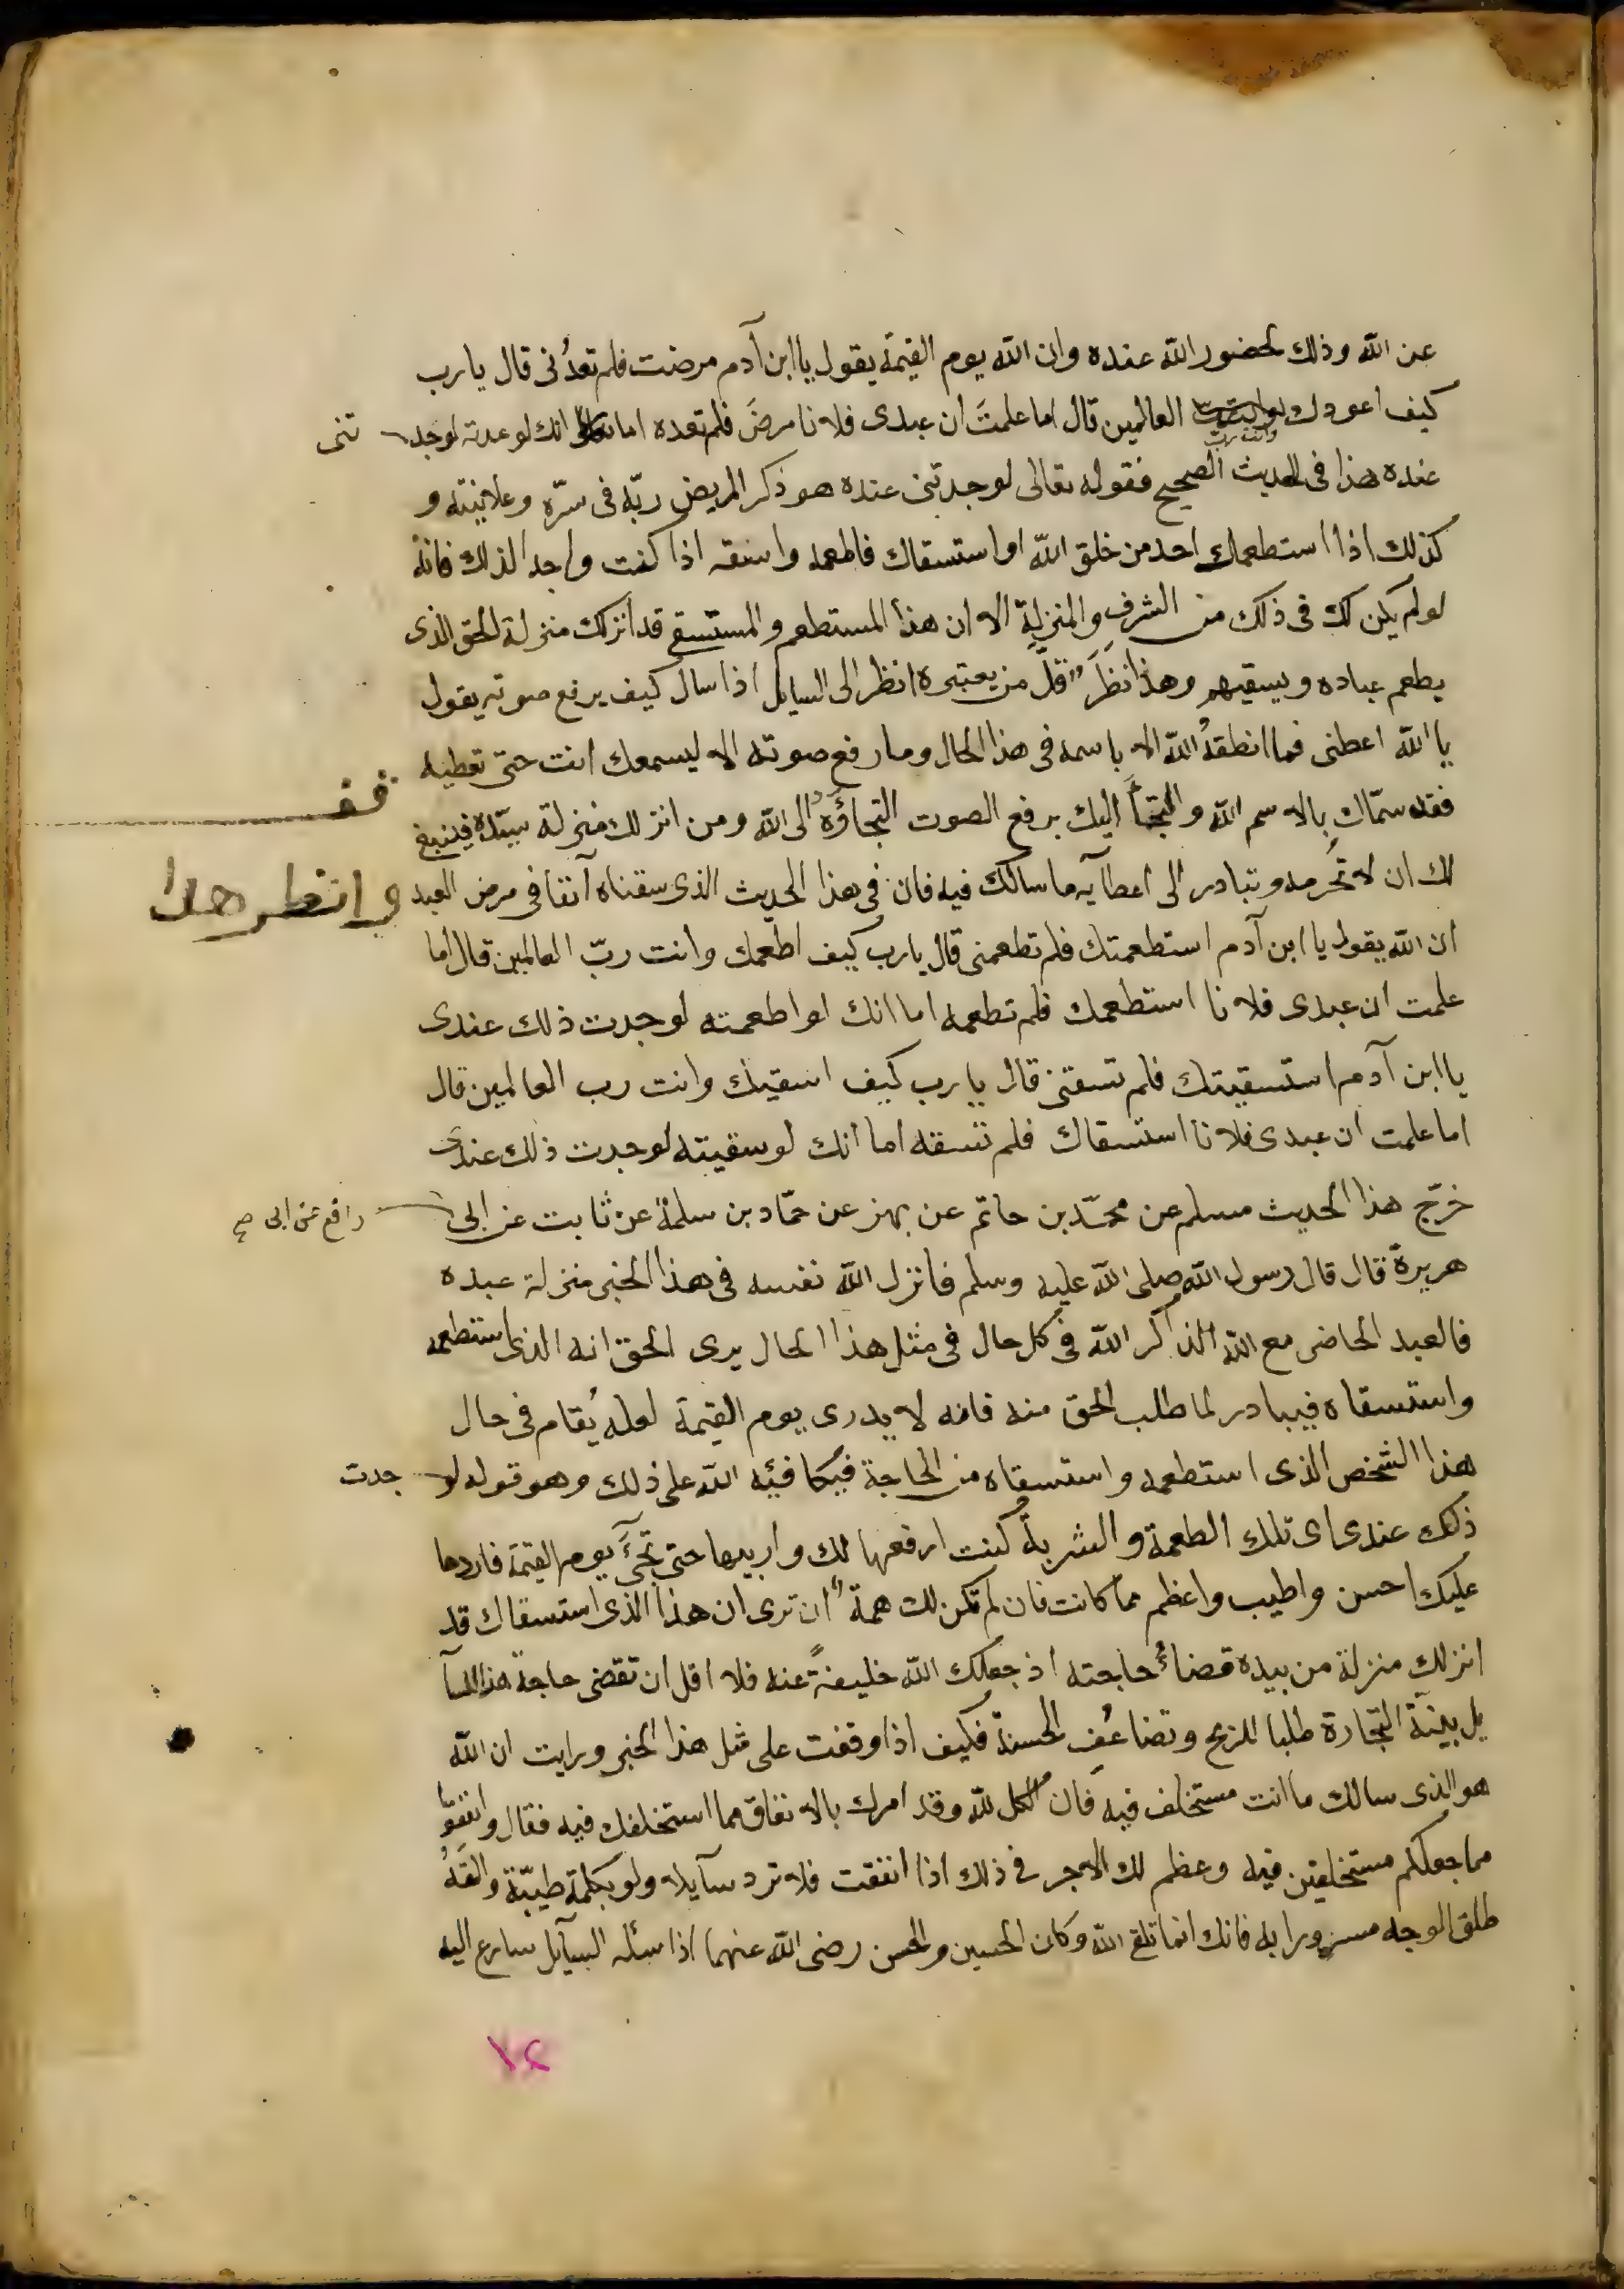 عن الله وذلك لحضور الله عنده وان الله يوم القيمة يقول يا ابن آدم مرضت فلم تعدُنى قال يا رب
كيف اعودك وانت رب العالمين قال اما علمتَ ان عبدى فلانا مرضَ فلم تعده اما انك لو عدته لوجد تنى
عنده هذا فى الحديث الصحيح فقوله تعالى لوجدتنى عنده هو ذكر المريض ربّه فى سرّه وعلانيته و
كذلك اذا استطعمك احد من خلق الله او استسقاك فاطعمه واسقه اذا كنت واجدا لذلك فانه
لو لم يكن لك فى ذلك من الشرف والمنزلة الا ان هذا المستطعم والمستسقى قد انزلك منزلة الحق الذى
يطعم عباده ويسقيهم وهذا نظَرٌ قلّ من يعتبره انظر الى السايل اذا سال كيف يرفع صوته يقول
يا الله اعطنى فما انطقهُ الله الا باسمه فى هذا الحال وما رفع صوته الا ليسمعك انت حتى تعطيه
فقد سمّاك بالاسم الله والتجأَ اليك برفع الصوت التجاؤَه الى الله ومن انزلك منزلة سيّده فينبغى
قف
لك ان لا تحُرمه وتبادر الى اعطآيه ما سالك فيه فان فى هذا الحديث الذى سقناه آنفا فى مرض العبد
وانظر هذا
ان الله يقول يا ابن آدم استطعمتك فلم تطعمنى قال يا رب كيف اطعمك وانت ربّ العالمين قال اما
علمت ان عبدى فلانا استطعمك فلم تطعمه اما انك لو اطعمته لوجدت ذلك عندى
يا ابن آدم استسقيتك فلم تسقنى قال يا رب كيف اسقيك وانت رب العالمين قال
اما علمت ان عبدى فلانا استسقاك فلم تسقه اما انك لو سقيته لوجدت ذلك عندى
خرّج هذا الحديث مسلم عن محمّد بن حاتم عن بهز عن حمّاد بن سلمة عن ثابت عن ابى رافع عن ابى صح
هريرة قال قال رسول الله صلى الله عليه وسلم فانزل الله نفسه فى هذا الخبر منزلة عبده
فالعبد الحاضر مع الله الذاكر الله فى كل حال فى مثل هذا الحال يرى الحق انه الذى استطعمه
واستسقاه فيبادر لما طلب الحق منه فانه لا يدرى يوم القيمة لعله يُقام فى حال
هذا الشخص الذى استطعمه واستسقاه من الحاجة فيكافئه الله على ذلك وهو قوله لو جدت
ذلك عندى اى تلك الطعمة والشربة كنت ارفعها لك واربيها حتى تجىَٔ يوم القيمة فاردها
عليك احسن واطيب واعظم مما كانت فان لم تكن لك همةٌ ان ترى ان هذا الذى استسقاك قد
انزلك منزلة من بيده قضاءُ حاجته اذ جعلك الله خليفةً عنه فلا اقل ان تقضى حاجة هذا السآ
يل بنيّة التجارة طلبا للربح وتضاعُف الحسنة فكيف اذا وقفت على مثل هذا الخبر ورايت ان الله
هو الذى سالك ما انت مستخلف فيه فان الكل لله وقد امرك بالانفاق مما استخلفك فيه فقال وانفقوا
مما جعلكم مستخلفين فيه وعظم لك الاجر فى ذلك اذا انفقت فلا ترد سآيلا ولو بكلمة طيّبة والقَهُ
طلق الوجه مسرورا به فانك انما تلقى الله وكان الحسين والحسن رضى الله عنهما اذا سئله السآيل سارع اليه
١٢